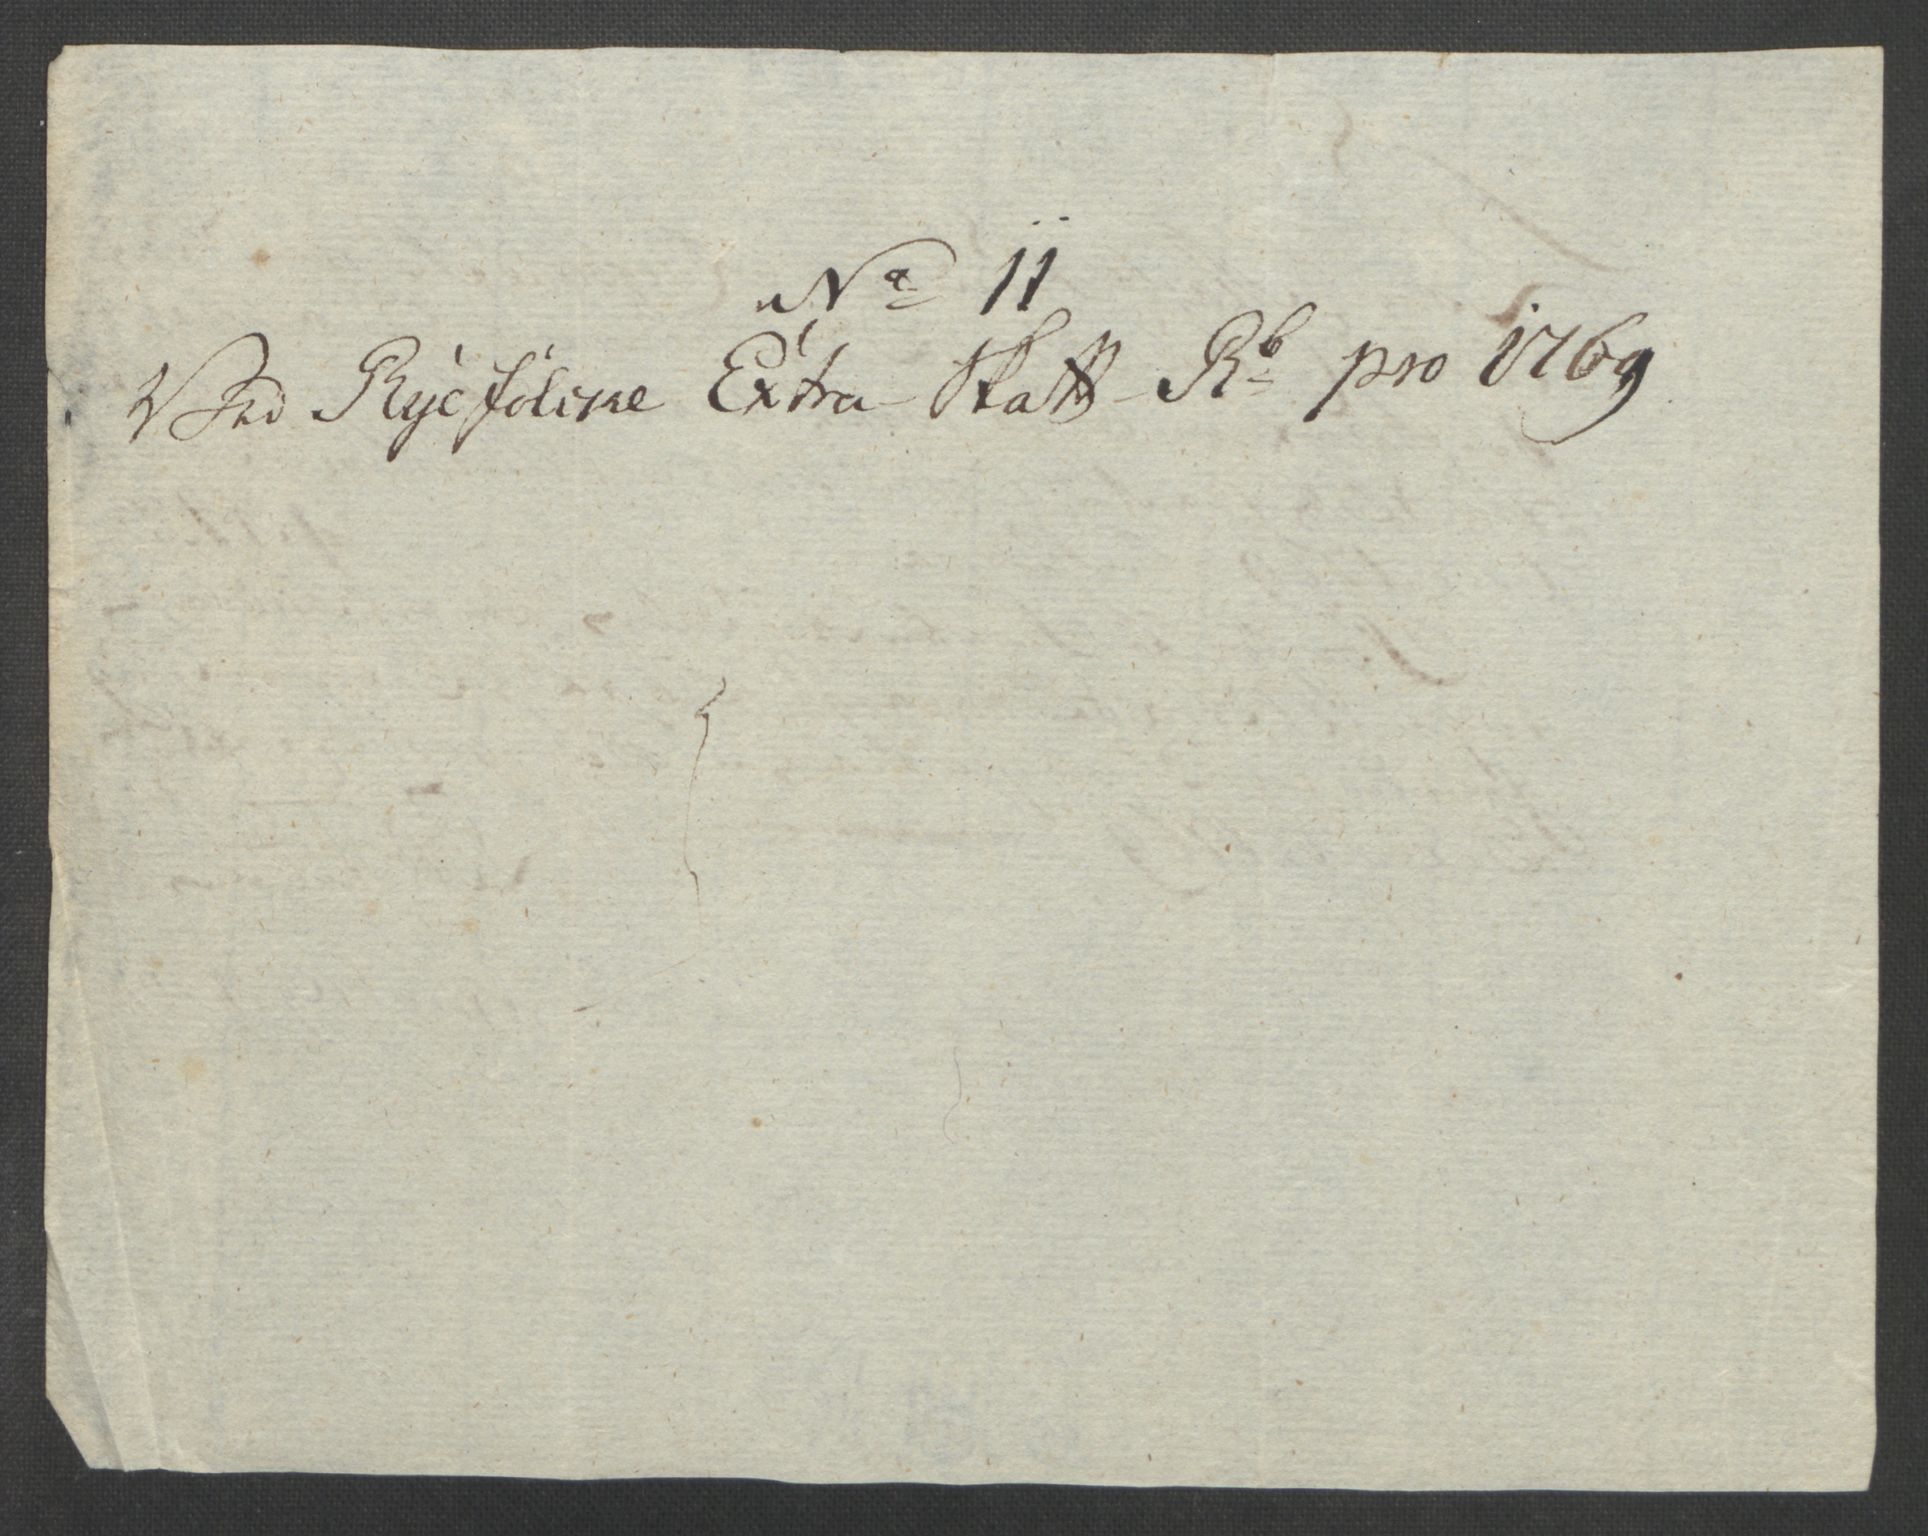 No 11
Ved Ryefölcke Extra Skatt Rb pro 1769